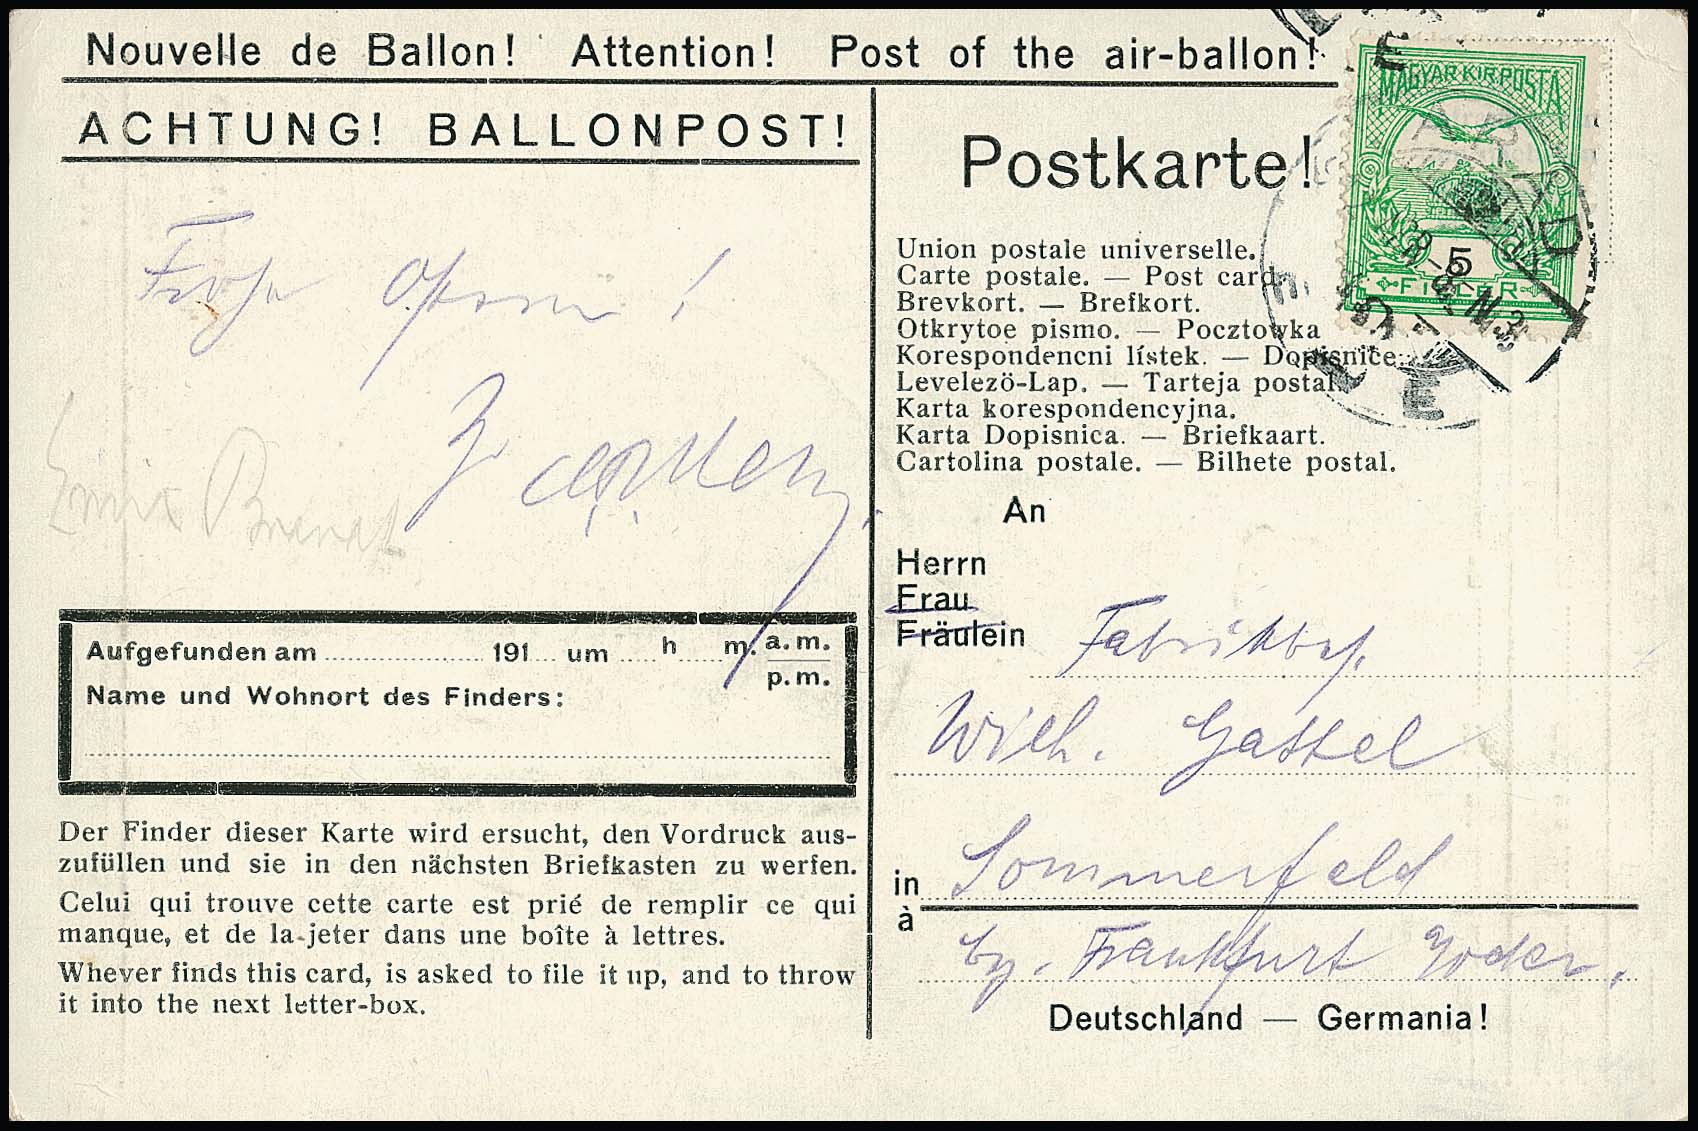 Nouvelle de Ballon! Attention! Post of the air-ballon!
ACHTUNG! BALLONPOST!
Frohe Ostern!
Aufgefunden am 191 um h m. a.m.
p.m.
Name und Wohnort des Finders:
Der Finder dieser Karte wird ersucht, den Vordruck aus-
zufüllen und sie in den nächsten Briefkasten zu werfen.
Celui qui trouve cette carte est prié de remplir ce qui
manque, et de la jeter dans une boîte à lettres.
Whever finds this card, is asked to file it up, and to throw
it into the next letter-box.
MAGYAR KIR. POSTA
5
FILLER
Postkarte!
Union postale universelle.
Carte postale. — Post card.
Brevkort. — Brefkort.
Otkrytoe pismo. — Pocztowka
Korespondencni lístek. — Dopisnice.
Levelezö-Lap. — Tarteja postal.
Karta korespondencyjna.
Karta Dopisnica. — Briefkaart.
Cartolina postale. — Bilhete postal.
An
Herrn
Frau
Fräulein
Fabrikbes.
Wilh. Gattel
in Sommerfeld
à
by. Frankfurt Yoder.
Deutschland — Germania!